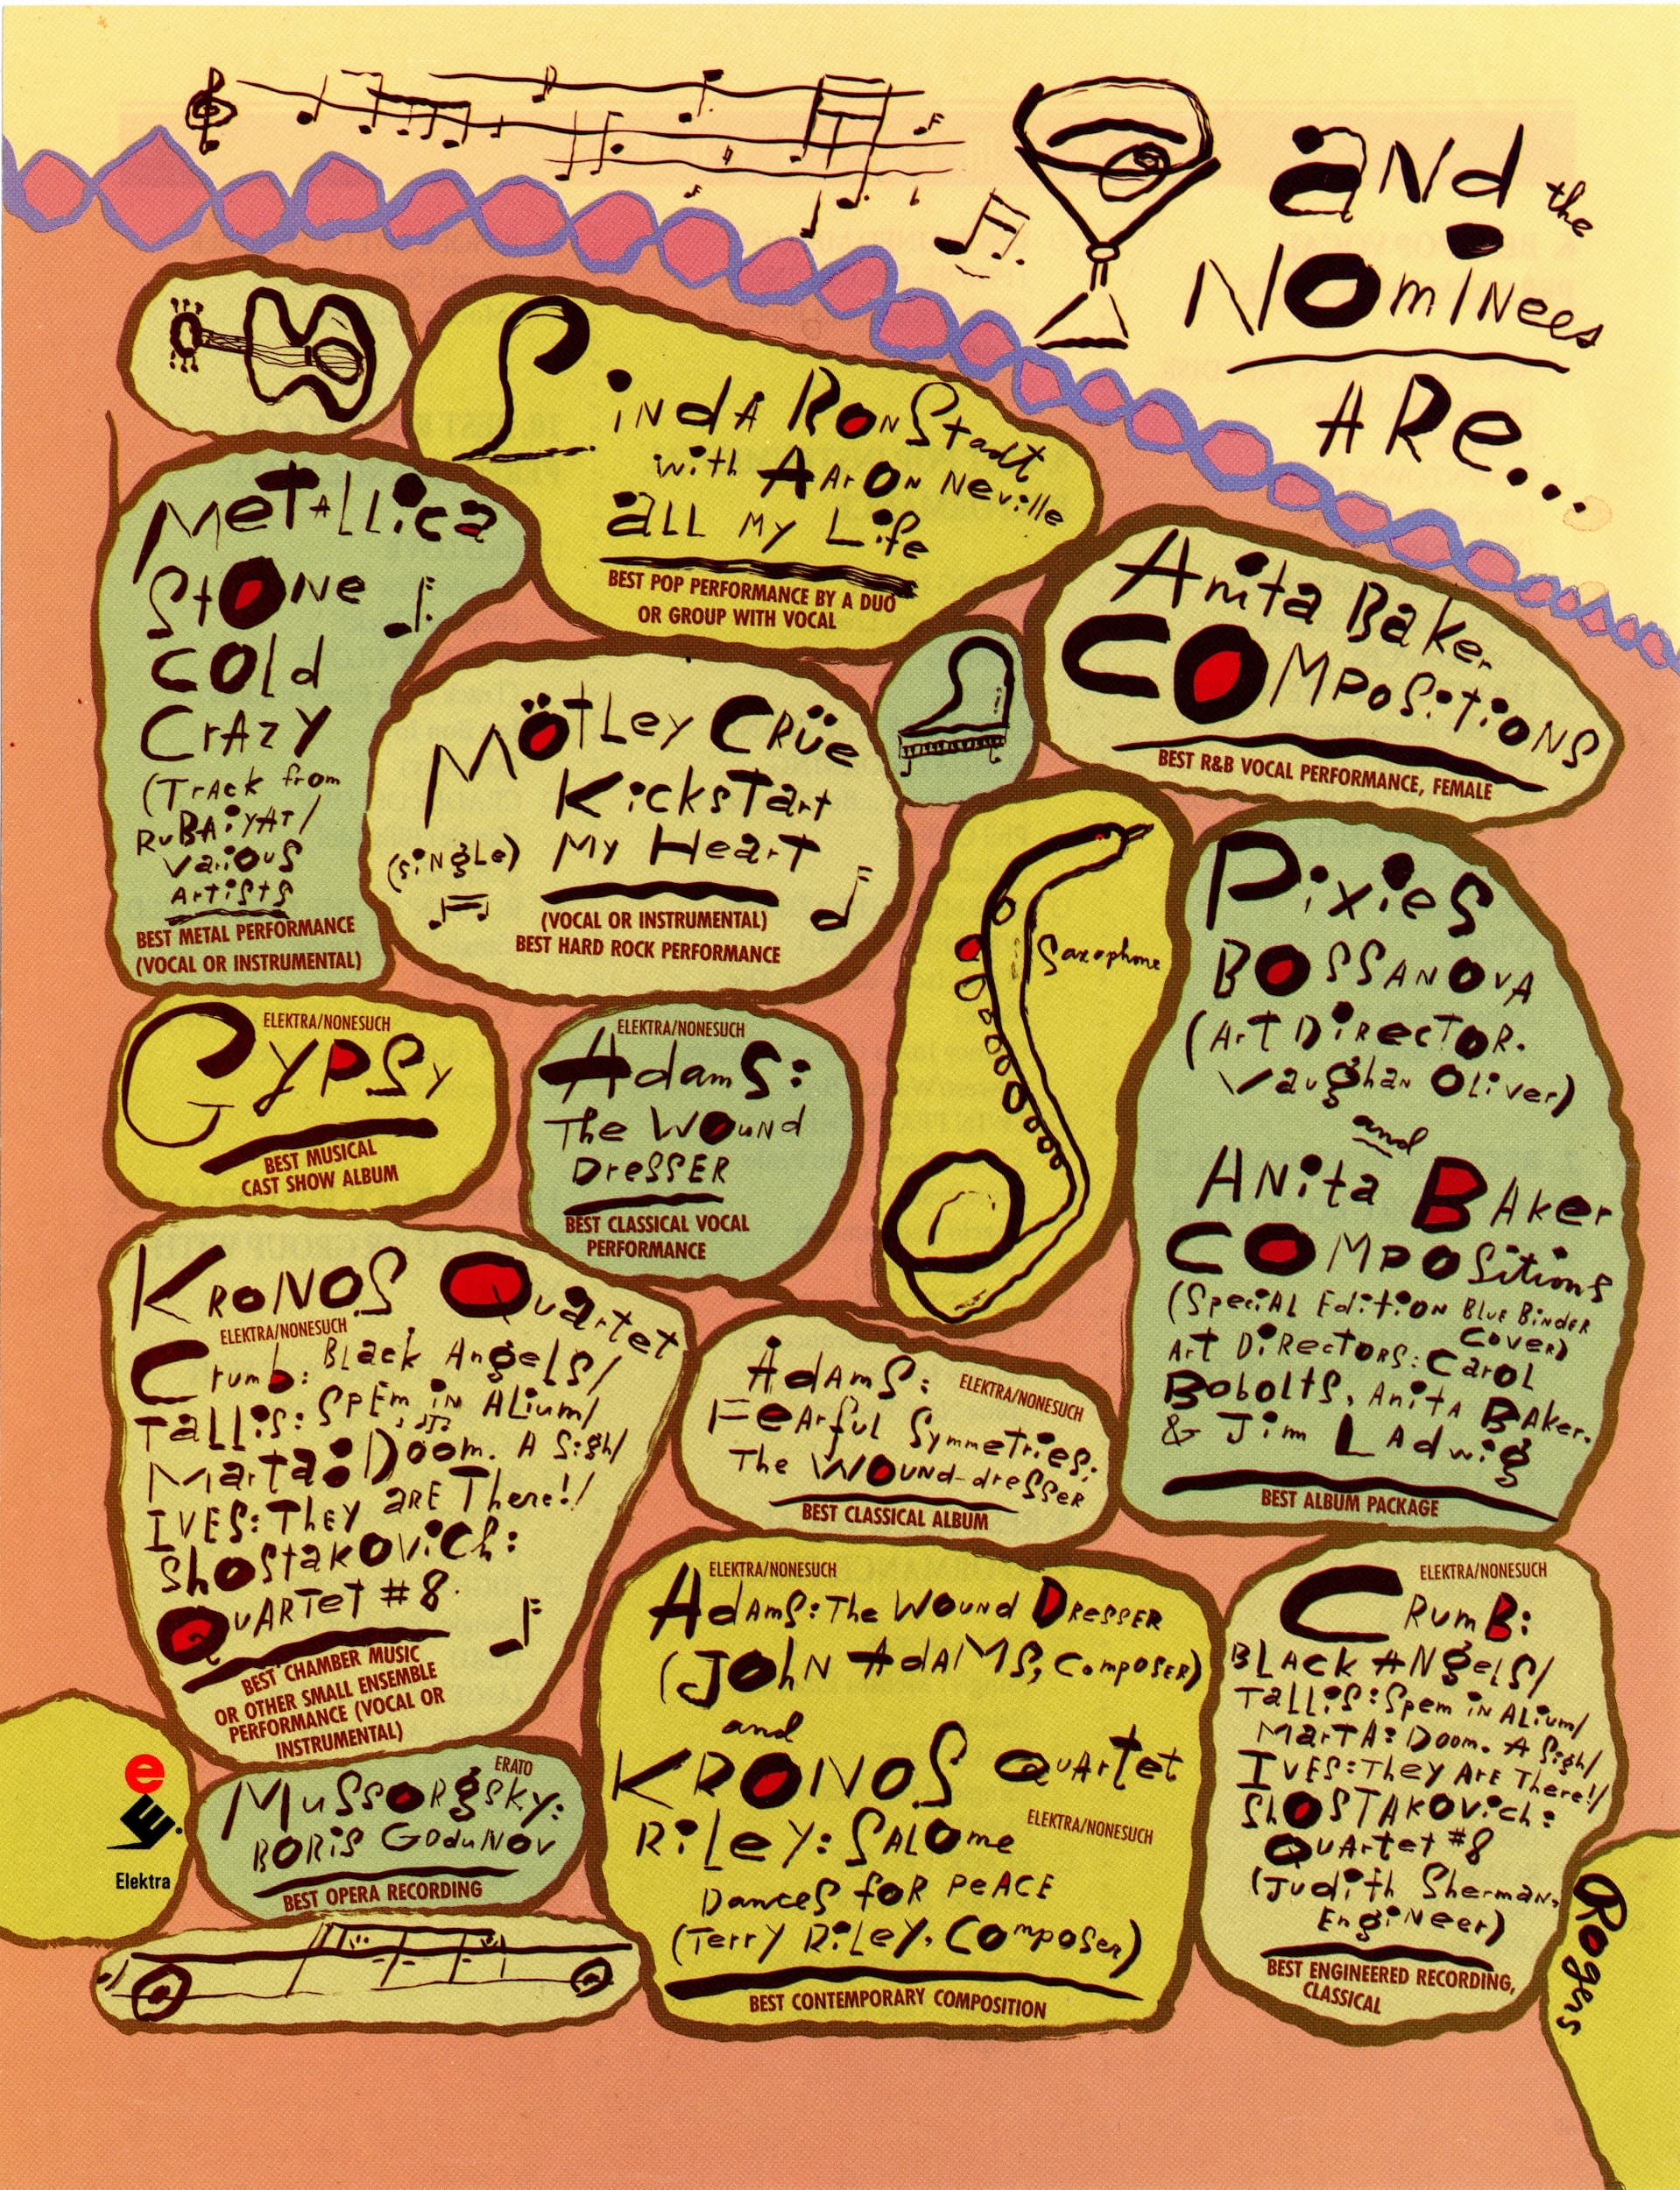 and the
Nominees
ARe...
Linda Ronstadt
with Aaron Neville
all My Life
BEST POP PERFORMANCE BY A DUO
OR GROUP WITH VOCAL
Metallica
Stone
Cold
Crazy
(Track from
RuBAiyAT/
Various
Artists
BEST METAL PERFORMANCE
(VOCAL OR INSTRUMENTAL)
Anita Baker
COMPOSITIONS
BEST R&B VOCAL PERFORMANCE, FEMALE
Mötley Crüe
Kickstart
(single) My Heart
(VOCAL OR INSTRUMENTAL)
BEST HARD ROCK PERFORMANCE
Saxophone
Pixies
BOSSANOVA
(Art Director.
Vaughan Oliver)
and
Anita Baker
COMPOSitions
(SpeciAL Edition Blue Binder
Cover)
Art Directors: Carol
Bobolts, Anita Baker.
& Jim Ladwig
BEST ALBUM PACKAGE
ELEKTRA/NONESUCH
Gypsy
BEST MUSICAL
CAST SHOW ALBUM
ELEKTRA/NONESUCH
Adams:
The Wound
Dresser
BEST CLASSICAL VOCAL
PERFORMANCE
Kronos Quartet
ELEKTRA/NONESUCH
Crumb: Black Angels/
Tallis: Spem in Alium/
Marta: Doom. A Sigh/
IVES: They are There!/
Shostakovich:
Quartet #8.
BEST CHAMBER MUSIC
OR OTHER SMALL ENSEMBLE
PERFORMANCE (VOCAL OR
INSTRUMENTAL)
Adams: ELEKTRA/NONESUCH
Fearful Symmetries;
The Wound-dresser
BEST CLASSICAL ALBUM
ELEKTRA/NONESUCH
Adams: The Wound Dresser
(John Adams, Composer)
and
KRONOS Quartet
ELEKTRA/NONESUCH
Riley: Salome
Dances for Peace
(Terry Riley, Composer)
BEST CONTEMPORARY COMPOSITION
ELEKTRA/NONESUCH
Crumb:
Black Angels/
Tallis: Spem in Alium/
Marta: Doom. A Sigh/
IVES: They Are There!/
Shostakovich:
Quartet #8
(Judith Sherman,
Engineer)
BEST ENGINEERED RECORDING,
CLASSICAL
e
E.
Elektra
ERATO
Mussorgsky:
BORIS Godunov
BEST OPERA RECORDING
Rogers